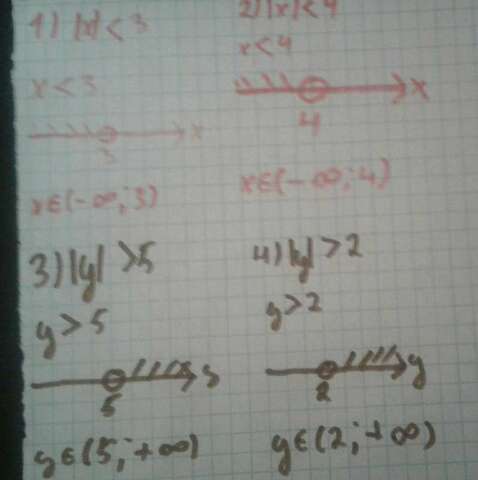 1) |x| < 3
x < 3
x
3
x∈(-∞; 3)
2) |x| < 4
x < 4
x
4
x∈(-∞; 4)
3) |y| > 5
y > 5
5
y∈(5; +∞)
4) |y| > 2
y > 2
y
2
y∈(2; +∞)